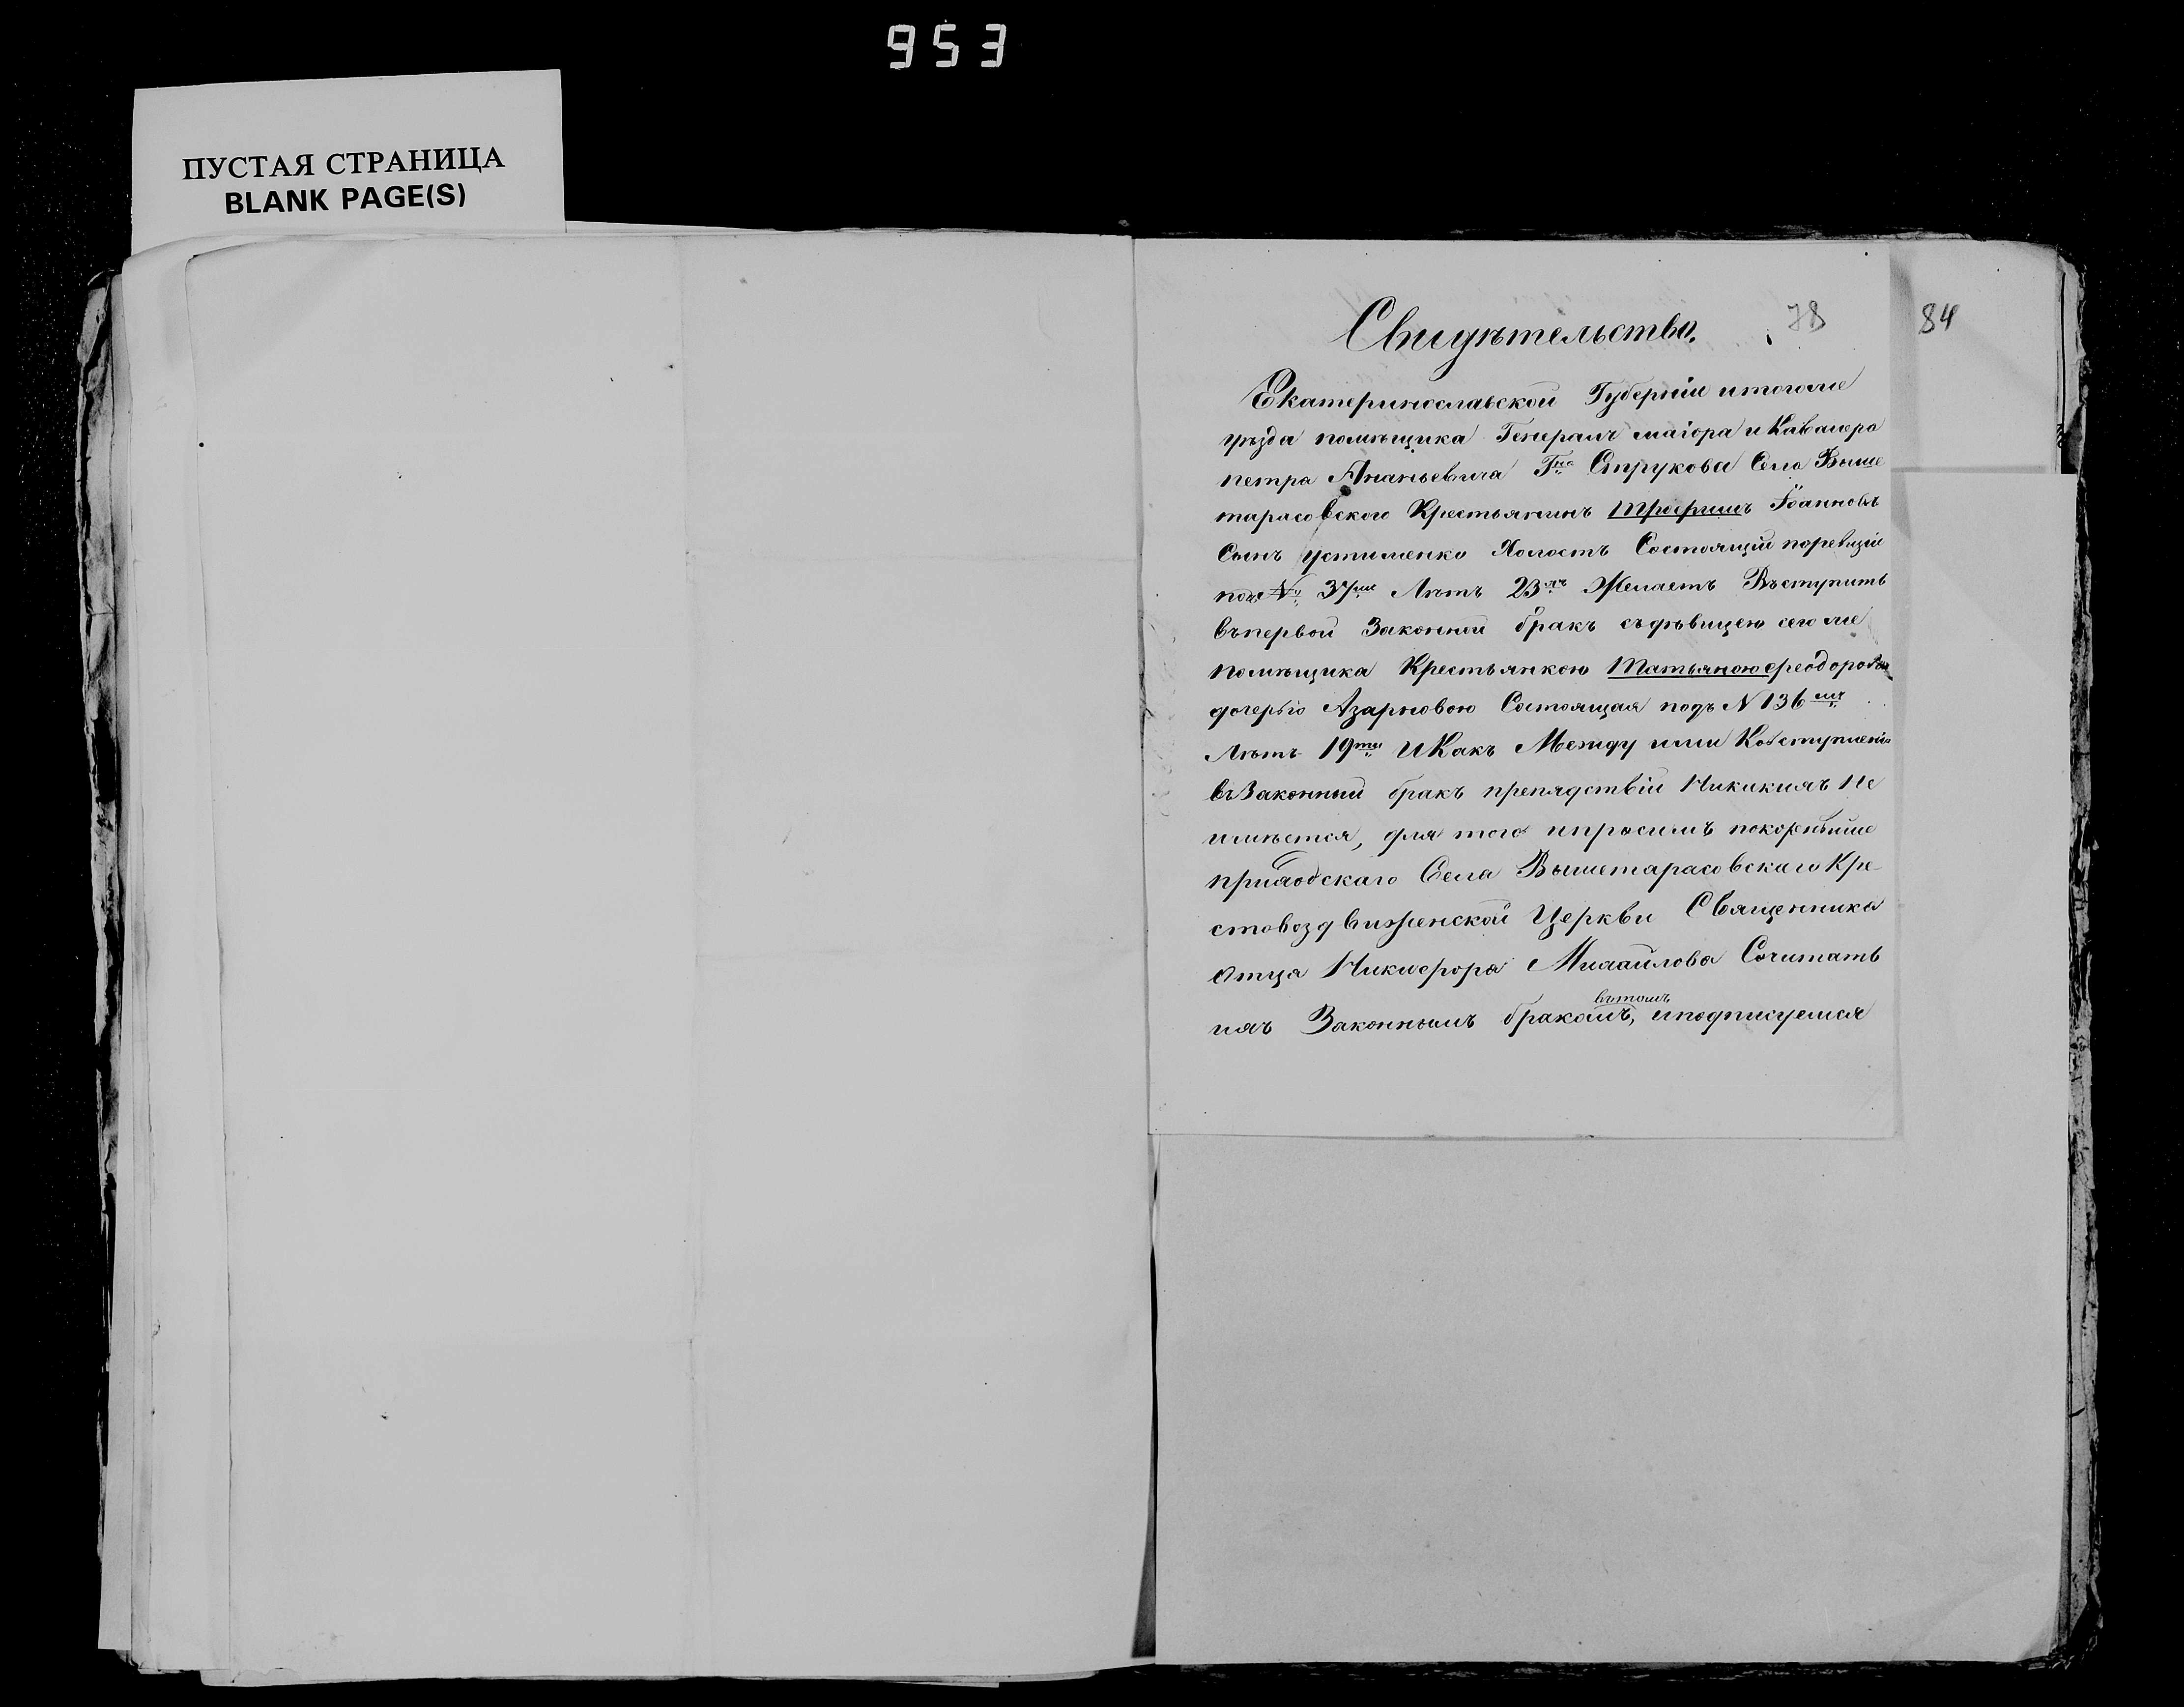 953
ПУСТАЯ СТРАНИЦА
BLANK PAGE(S)
78
84
Свидѣтельство.
Екатеринославской Губерніи итогоже
уѣзда помѣщика Генералъ маіора и Кавалера
петра Ананьевича Гна Струкова Села Выше
тарасовского Крестьянинъ Трофимъ Іоанновъ
Сынъ устименко Холостъ Состоящій поревизіи
подъ № 37мъ Лѣтъ 23хъ Желаетъ Вступить
въпервой Законной бракъ съдѣвицею сегоже
помѣщика Крестьянкою Татьяною Феодоровою
дочерью Азарновою Состоящая подъ N 136мъ
Лѣтъ 19ти ИКакъ Между ими Ковступленію
въЗаконный бракъ препядствіи Никакихъ Не
имѣется, для того ипросимъ покорнѣйше
приходскаго Села Вышетарасовскаго Кре
стовоздвиженской Церкви Священника
Отца Никифора Михайлова Сочитать
ихъ Законнымъ бракомъ, вътомъ иподписуемся